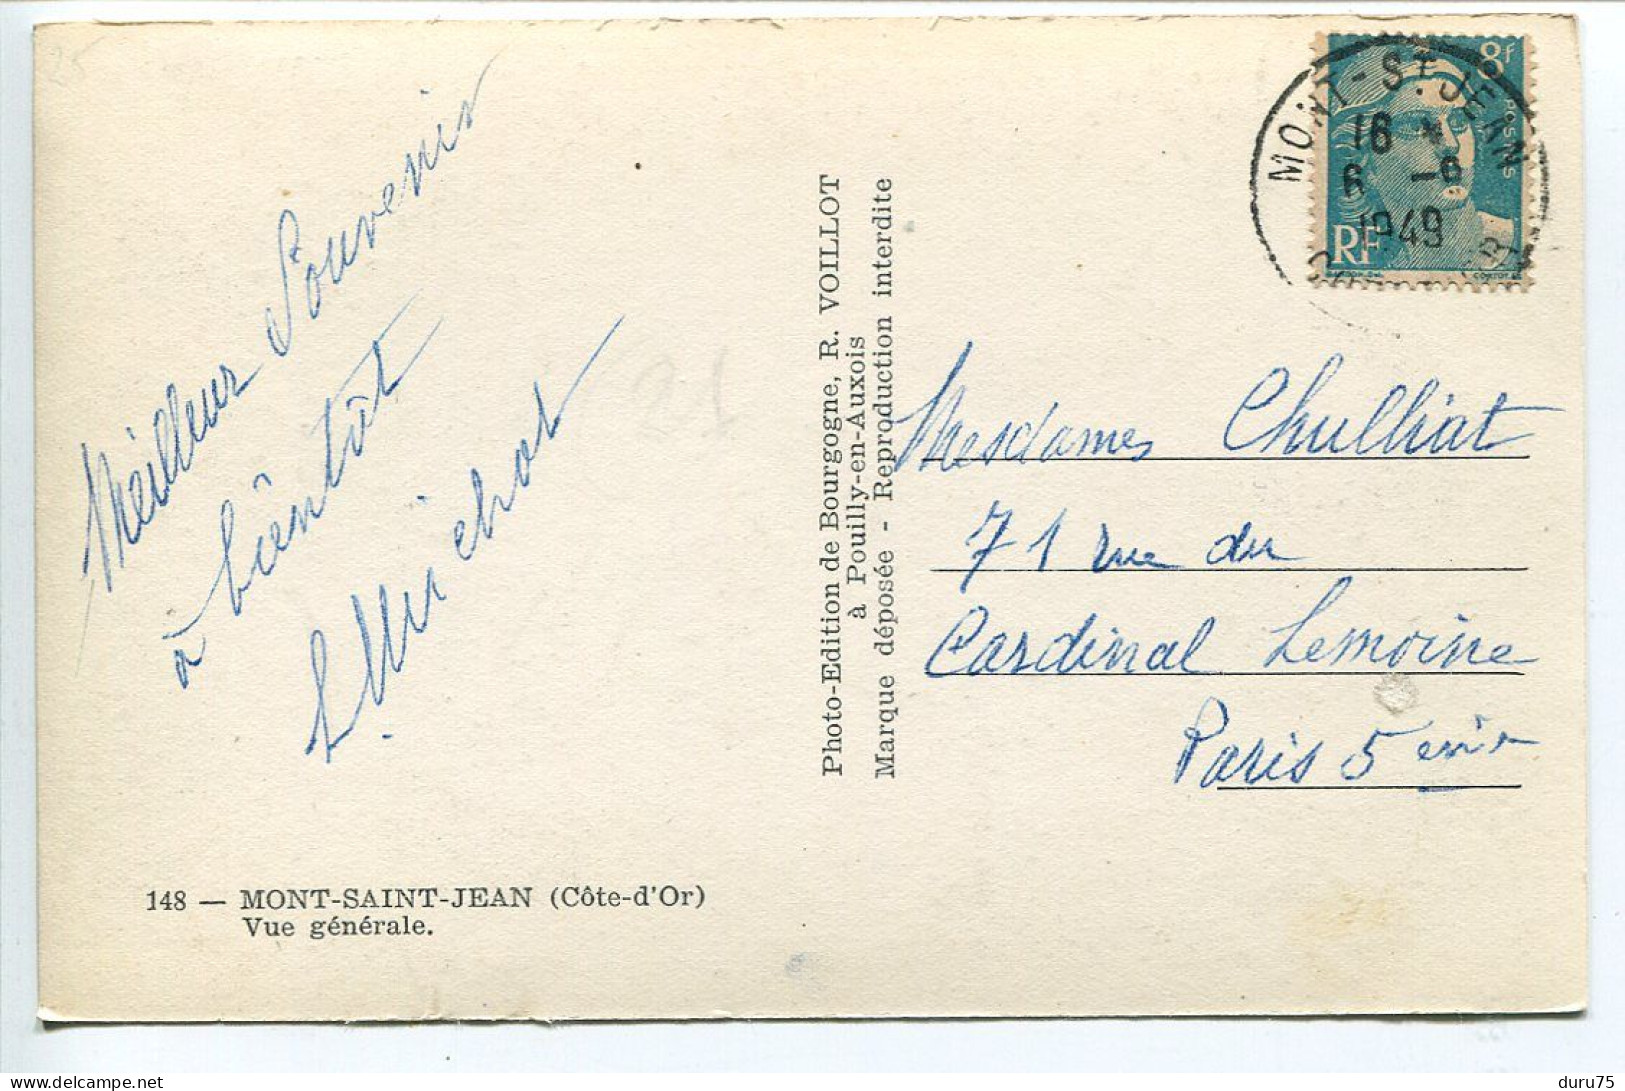 Meilleur Souvenir
à bientôt
L. Michot
148 — MONT-SAINT-JEAN (Côte-d'Or)
Vue générale.
Photo-Edition de Bourgogne, R. VOILLOT
à Pouilly-en-Auxois
Marque déposée - Reproduction interdite
8f
POSTES
RF
MONT-ST. JEAN
16
6 -6
1949
Mesdames Chulliat
71 rue du
Cardinal Lemoine
Paris 5 eme
duru75